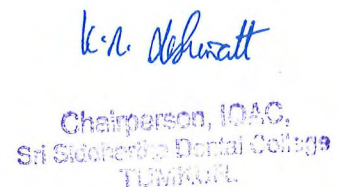 K.R.
Chairperson, IQAC,
Sri Siddhartha Dental College
TUMKUR.